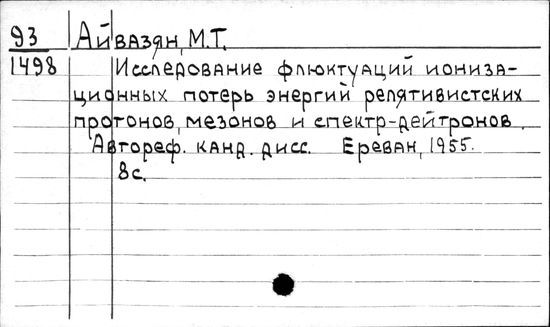 93 Айвазян, М.Т.
1498 Исследование флюктуаций иониза-
ционных потерь энергий релятивистских
протонов, мезонов и спектр-дейтронов.
Автореф. канд. дисс. Ереван, 1955.
8с.